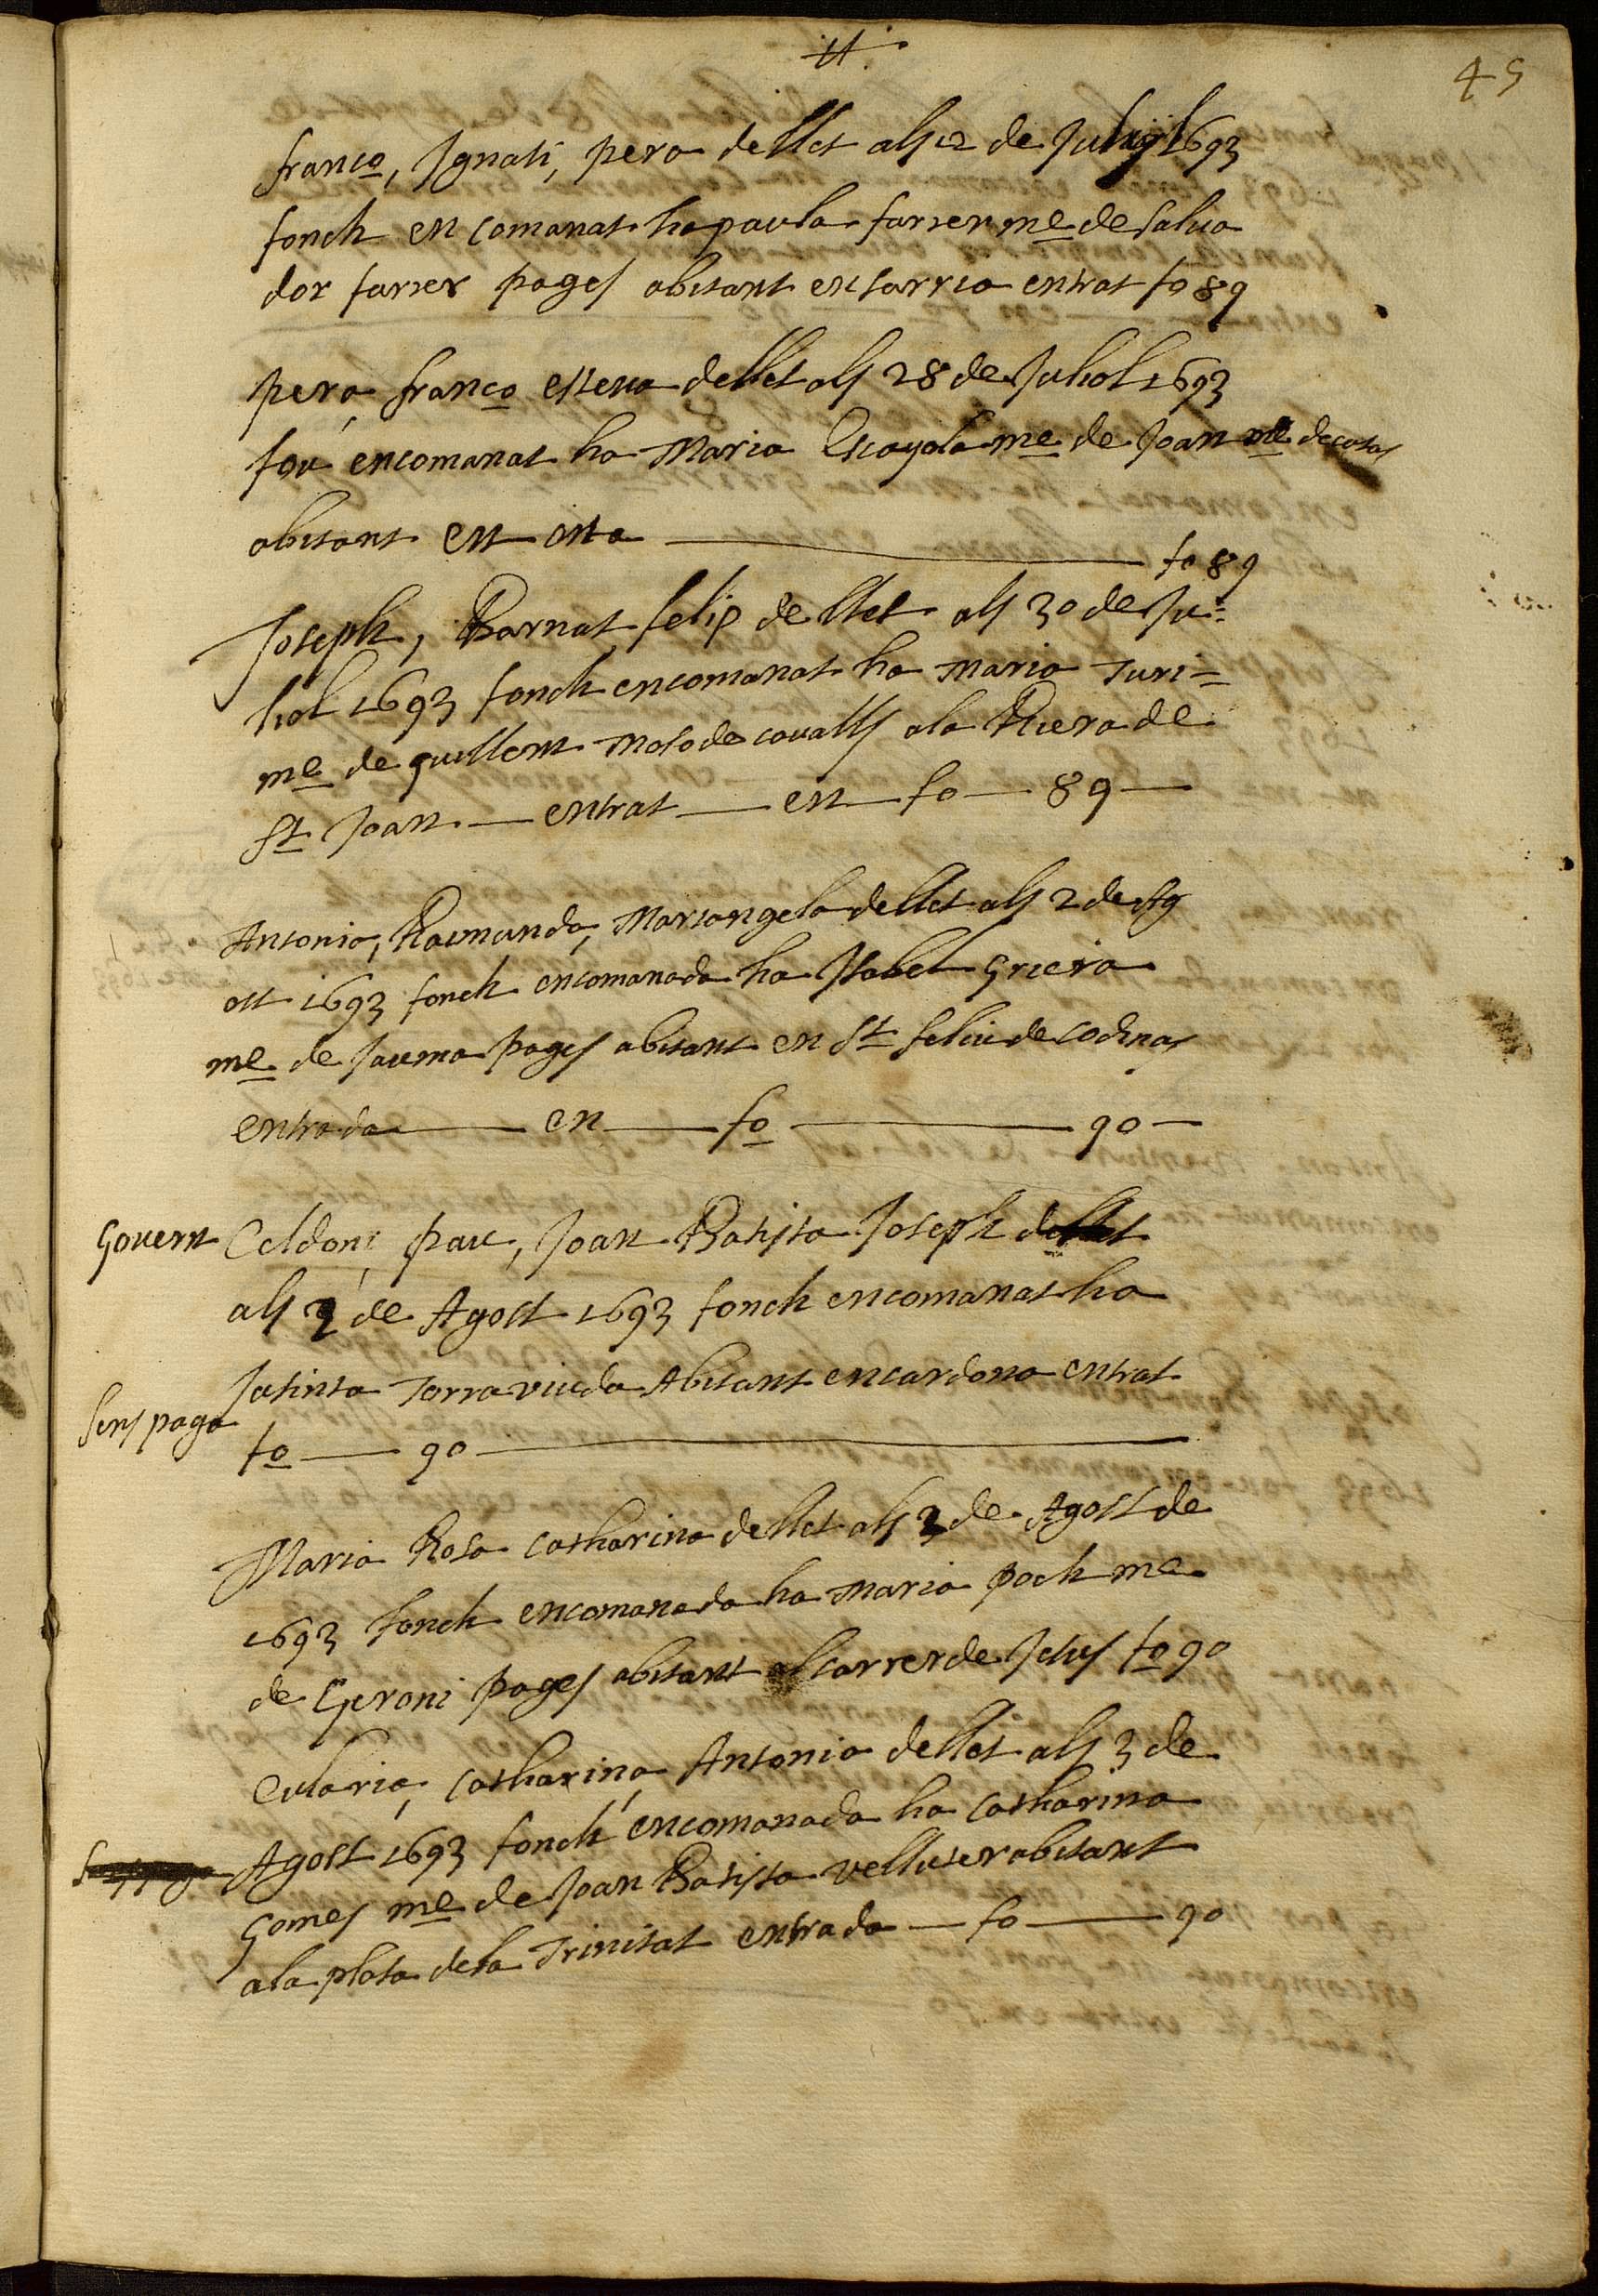 45
franco, Ignati, pera de llet als 12 de Juliol 1693
fonch en comanat ha paula farrer me de salua
dor farrer pages abitant en sarria entrat fo 89
pera franco esteva de llet als 28 de Juliol 1693
fou encomanat ha Maria Escayola me de Joan me de casas
abitant en osta fo 89
Joseph, Barnat felip de llet als 30 de Ju=
liol 1693 fonch encomanat ha maria Turi=
me de guillem moso de cavalls a la Riera de
St Joan entrat en fo 89
Antonia, Raimunda, Mariangela de llet als 2 de Ag
ost 1693 fonch encomanada ha Isabel Griera
me de Jauma pages abitant en St feliu de codinas
entrada en fo 90
Govern Celdoni, pau, Joan Batista Joseph de llet
als 2 de Agost 1693 fonch encomanat ha
Jasinta Torra viuda Abitant en cardona entrat
Sens paga
fo 90
Maria Rosa catharina de llet als 3 de Agost de
1693 fonch encomanada ha maria poch me
de Geroni pages abitant al carrer de Jesus fo 90
Eularia, catharina, Antonia de llet als 3 de
Agost 1693 fonch encomanada ha catharina
gomes me de Joan Batista velluter abitant
a la plasa de la Trinitat entrada fo 90